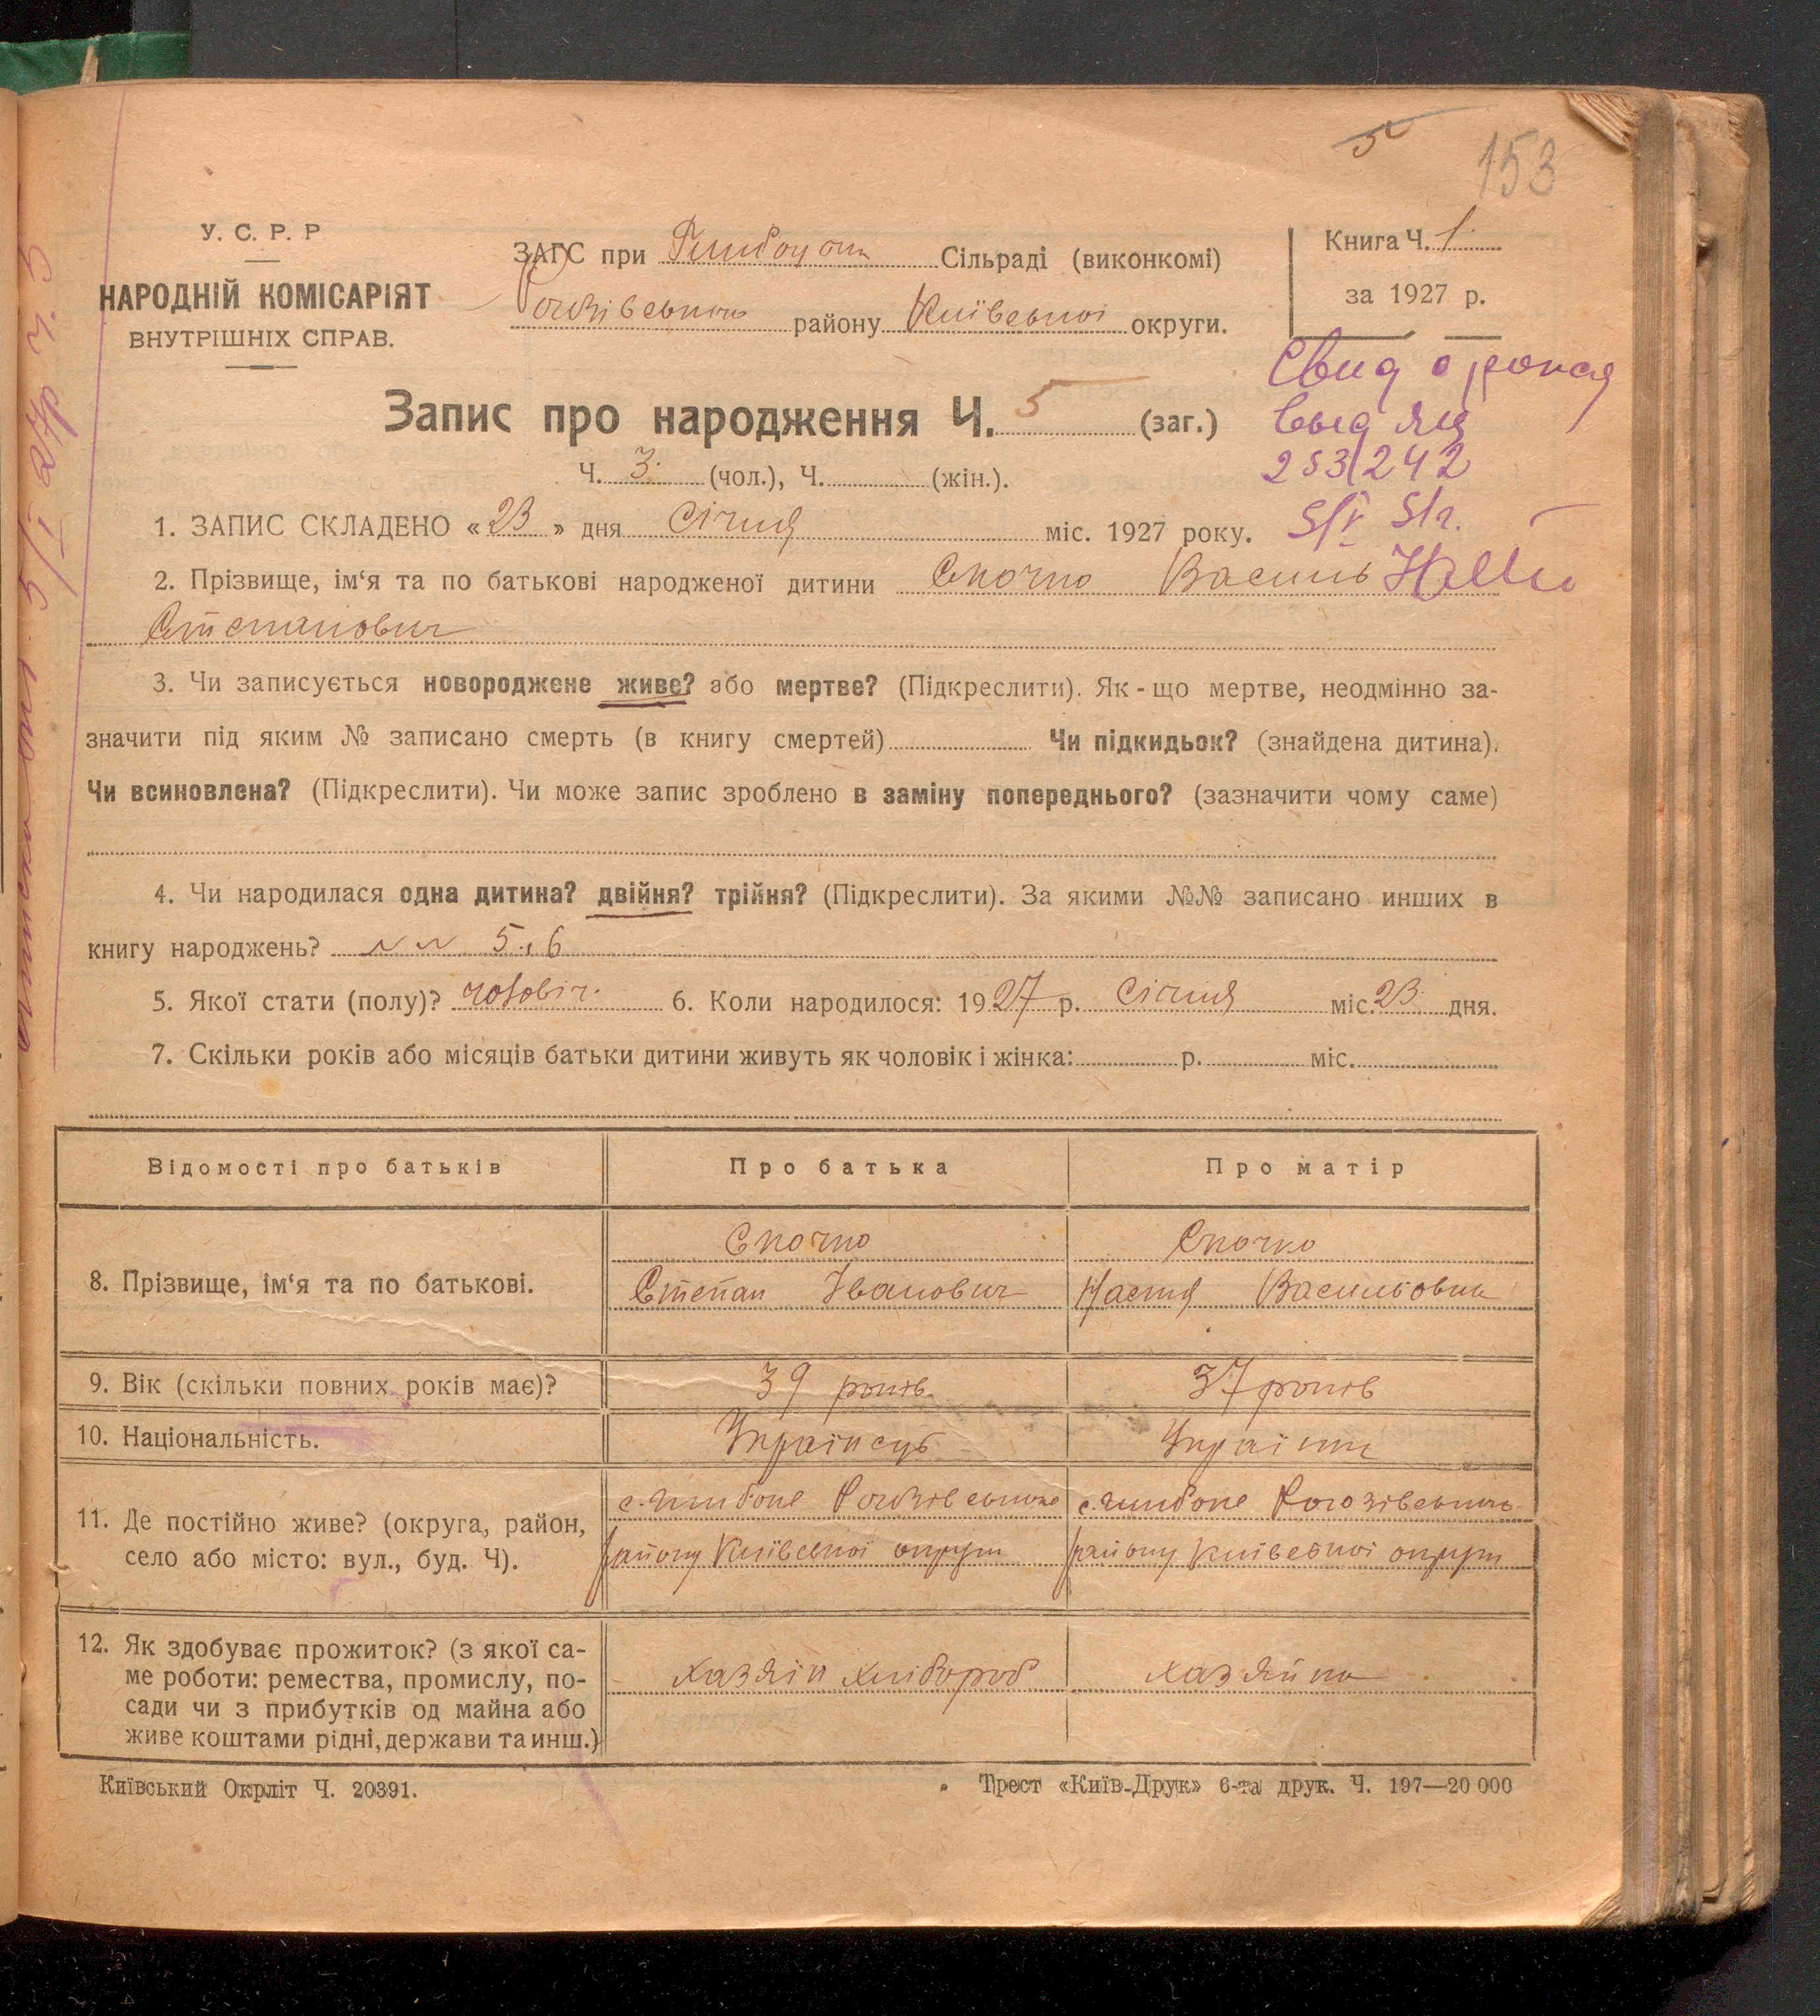 5
153
У. С. Р. Р
НАРОДНІЙ КОМІСАРІЯТ
ВНУТРІШНІХ СПРАВ.
ЗАГС при Глибоцькій Сільраді (виконкомі)
Рогозівського району Київської округи.
Книга Ч. 1.
за 1927 р.
Запис про народження Ч. 5 (заг.)
Ч. 3. (чол.), Ч. (жін.).
Свид о
253242
5/V 51г.
1. ЗАПИС СКЛАДЕНО «23» дня Січня міс. 1927 року.
2. Прізвище, ім‘я та по батькові народженої дитини Скочко Василь
Степанович
3. Чи записується новороджене живе? або мертве? (Підкреслити). Як-що мертве, неодмінно за-
значити під яким № записано смерть (в книгу смертей) Чи підкидьок? (знайдена дитина).
Чи всиновлена? (Підкреслити). Чи може запис зроблено в заміну попереднього? (зазначити чому саме)
4. Чи народилася одна дитина? двійня? трійня? (Підкреслити). За якими №№ записано инших в
книгу народжень? 5. 6
5. Якої стати (полу)? чоловіч. 6. Коли народилося: 1927 р. Січня міс. 23 дня.
7. Скільки років або місяців батьки дитини живуть як чоловік і жінка: р. міс.
Відомості про батьків Про батька Про матір
8. Прізвище, ім‘я та по батькові.
Скочко
Степан Іванович
Скочко
Настя Васильовна
9. Вік (скільки повних років має)? 39 років. 37 років
10. Національність. Українець Українка
11. Де постійно живе? (округа, район,
село або місто: вул., буд. Ч).
с. Глибоке Рогозівського
району Київської округи
с. Глибоке Рогозівського
району Київської округи
12. Як здобуває прожиток? (з якої са-
ме роботи: ремества, промислу, по-
сади чи з прибутків од майна або
живе коштами рідні, держави та инш.)
хазяїн хлібороб
хазяйка
Київський Окрліт Ч. 20391.
Трест «Київ-Друк» 6-та друк. Ч. 197—20 000